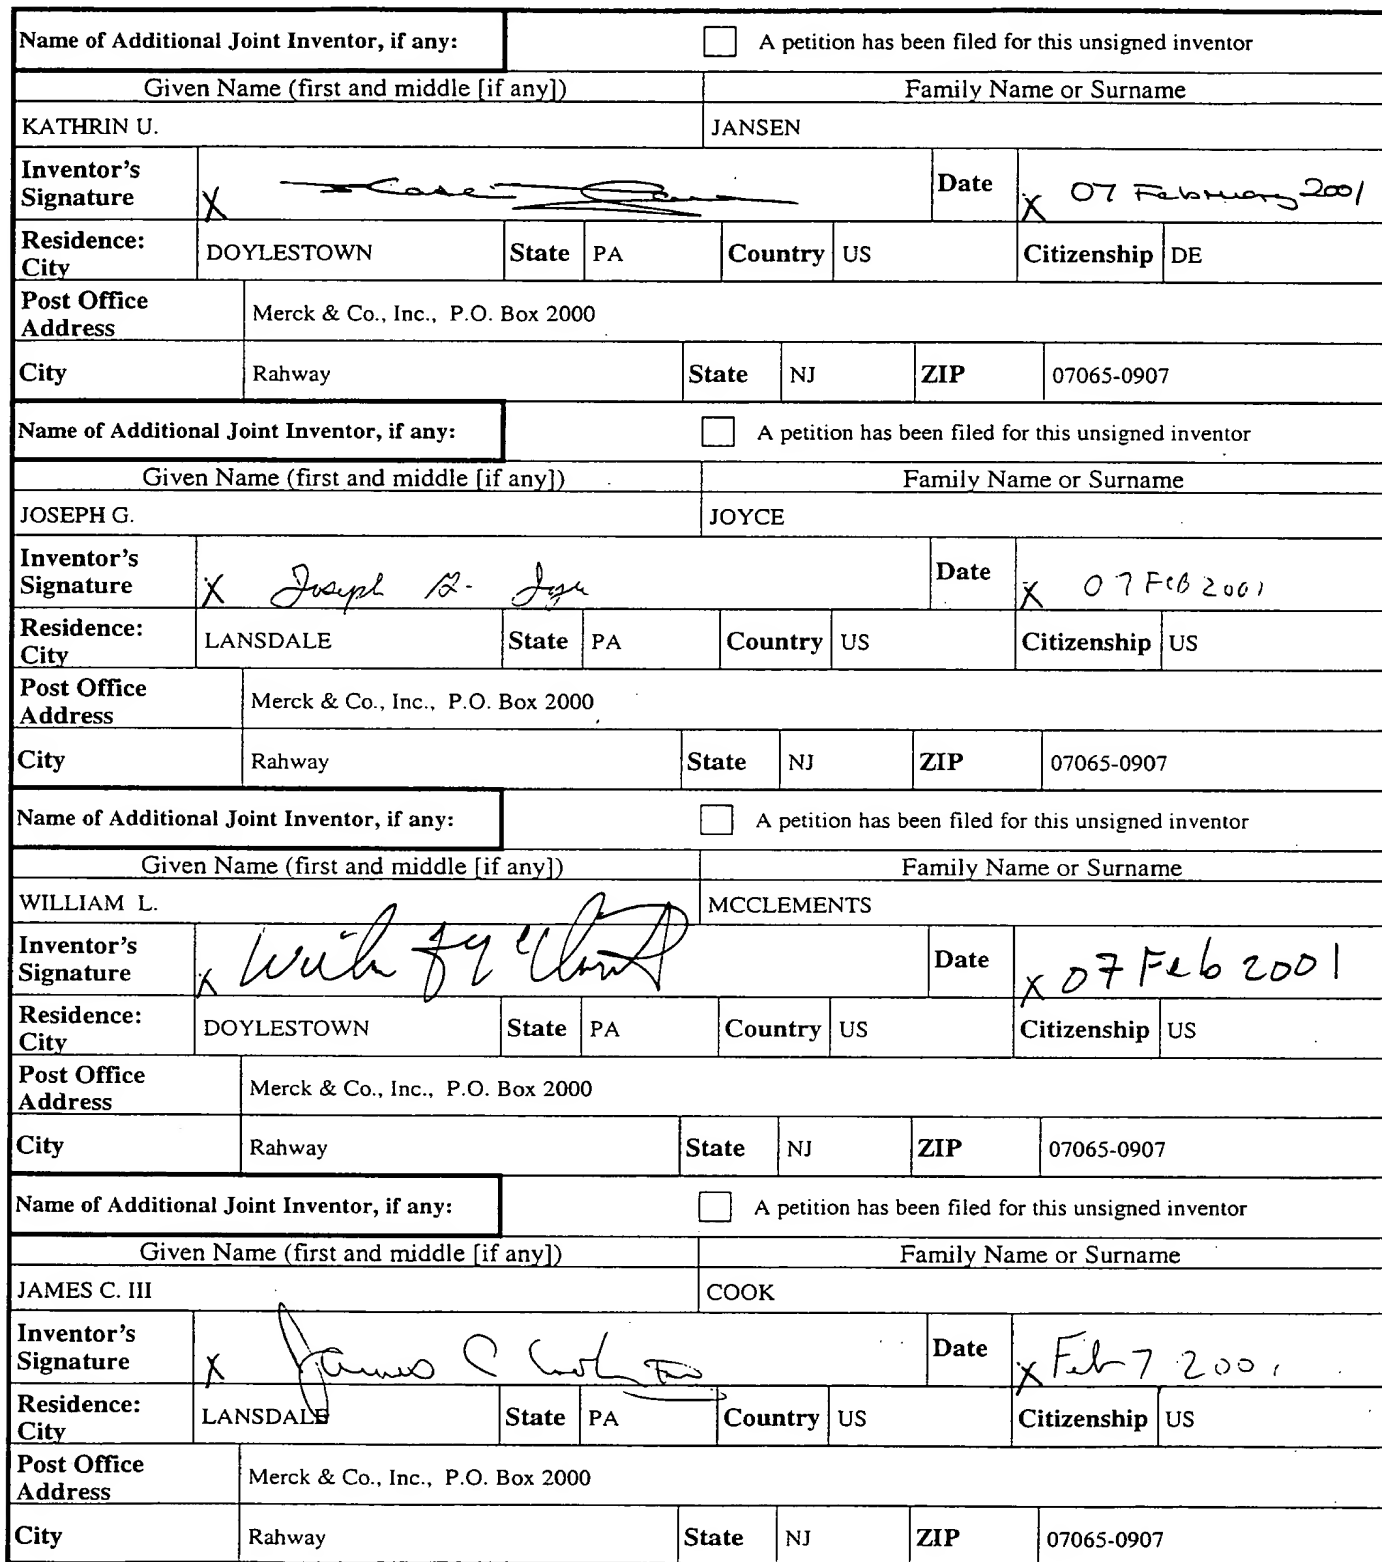 Name of Additional Joint Inventor, if any: A petition has been filed for this unsigned inventor
Given Name (first and middle [if any]) Family Name or Surname
KATHRIN U. JANSEN
Inventor's Signature X Date X 07 February 2001
Residence: City DOYLESTOWN State PA Country US Citizenship DE
Post Office Address Merck & Co., Inc., P.O. Box 2000
City Rahway State NJ ZIP 07065-0907
Name of Additional Joint Inventor, if any: A petition has been filed for this unsigned inventor
Given Name (first and middle [if any]) Family Name or Surname
JOSEPH G. JOYCE
Inventor's Signature X Joseph G. Joyce Date X 07 FEB 2001
Residence: City LANSDALE State PA Country US Citizenship US
Post Office Address Merck & Co., Inc., P.O. Box 2000
City Rahway State NJ ZIP 07065-0907
Name of Additional Joint Inventor, if any: A petition has been filed for this unsigned inventor
Given Name (first and middle [if any]) Family Name or Surname
WILLIAM L. MCCLEMENTS
Inventor's Signature X Date X 07 Feb 2001
Residence: City DOYLESTOWN State PA Country US Citizenship US
Post Office Address Merck & Co., Inc., P.O. Box 2000
City Rahway State NJ ZIP 07065-0907
Name of Additional Joint Inventor, if any: A petition has been filed for this unsigned inventor
Given Name (first and middle [if any]) Family Name or Surname
JAMES C. III COOK
Inventor's Signature X James C Cook III Date X Feb 7 2001
Residence: City LANSDALE State PA Country US Citizenship US
Post Office Address Merck & Co., Inc., P.O. Box 2000
City Rahway State NJ ZIP 07065-0907